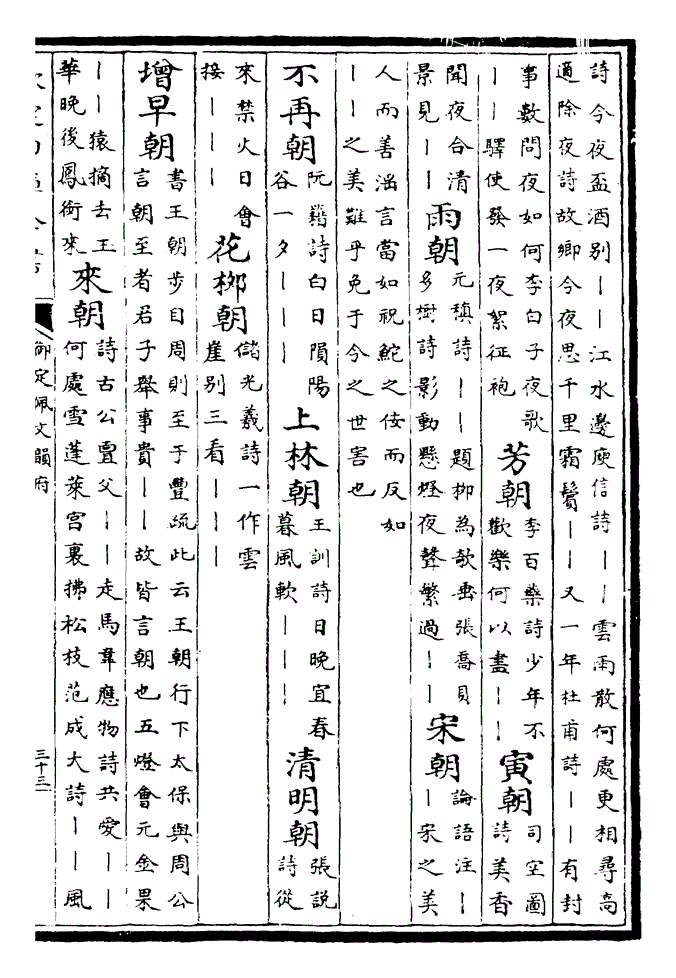 詩今夜盃酒别||江水邊庾信詩||雲雨散何處更相尋高
適除夜詩故鄉今夜思千里霜鬢||又一年杜甫詩||有封
事數問夜如何李白子夜歌
||驛使發一夜絮征袍
芳朝
李百藥詩少年不
歡樂何以盡||
寅朝
司空圖
詩美香
聞夜合清
景見||
雨朝
元稹詩||題柳為欹垂張喬貝
多樹詩影動懸燈夜聲繁過||
宋朝
論語注|
|宋之美
人而善淫言當如祝鮀之佞而反如
||之美難乎免于今之世害也
不再朝
阮籍詩白日隕陽
谷一夕|||
上林朝
王訓詩日晚宜春
暮風軟|||
清明朝
張說
詩從
來禁火日會
接|||
花柳朝
儲光羲詩一作雲
崖别三看|||
增早朝
書王朝步自周則至于豐疏此云王朝行下太保與周公
言朝至者君子舉事貴||故皆言朝也五燈會元金果
||猿摘去玉
華晚後鳳銜來
來朝
詩古公亶父||走馬韋應物詩共愛||
何處雪蓬萊宮裏拂松枝范成大詩||風
御定佩文韻府
三十三